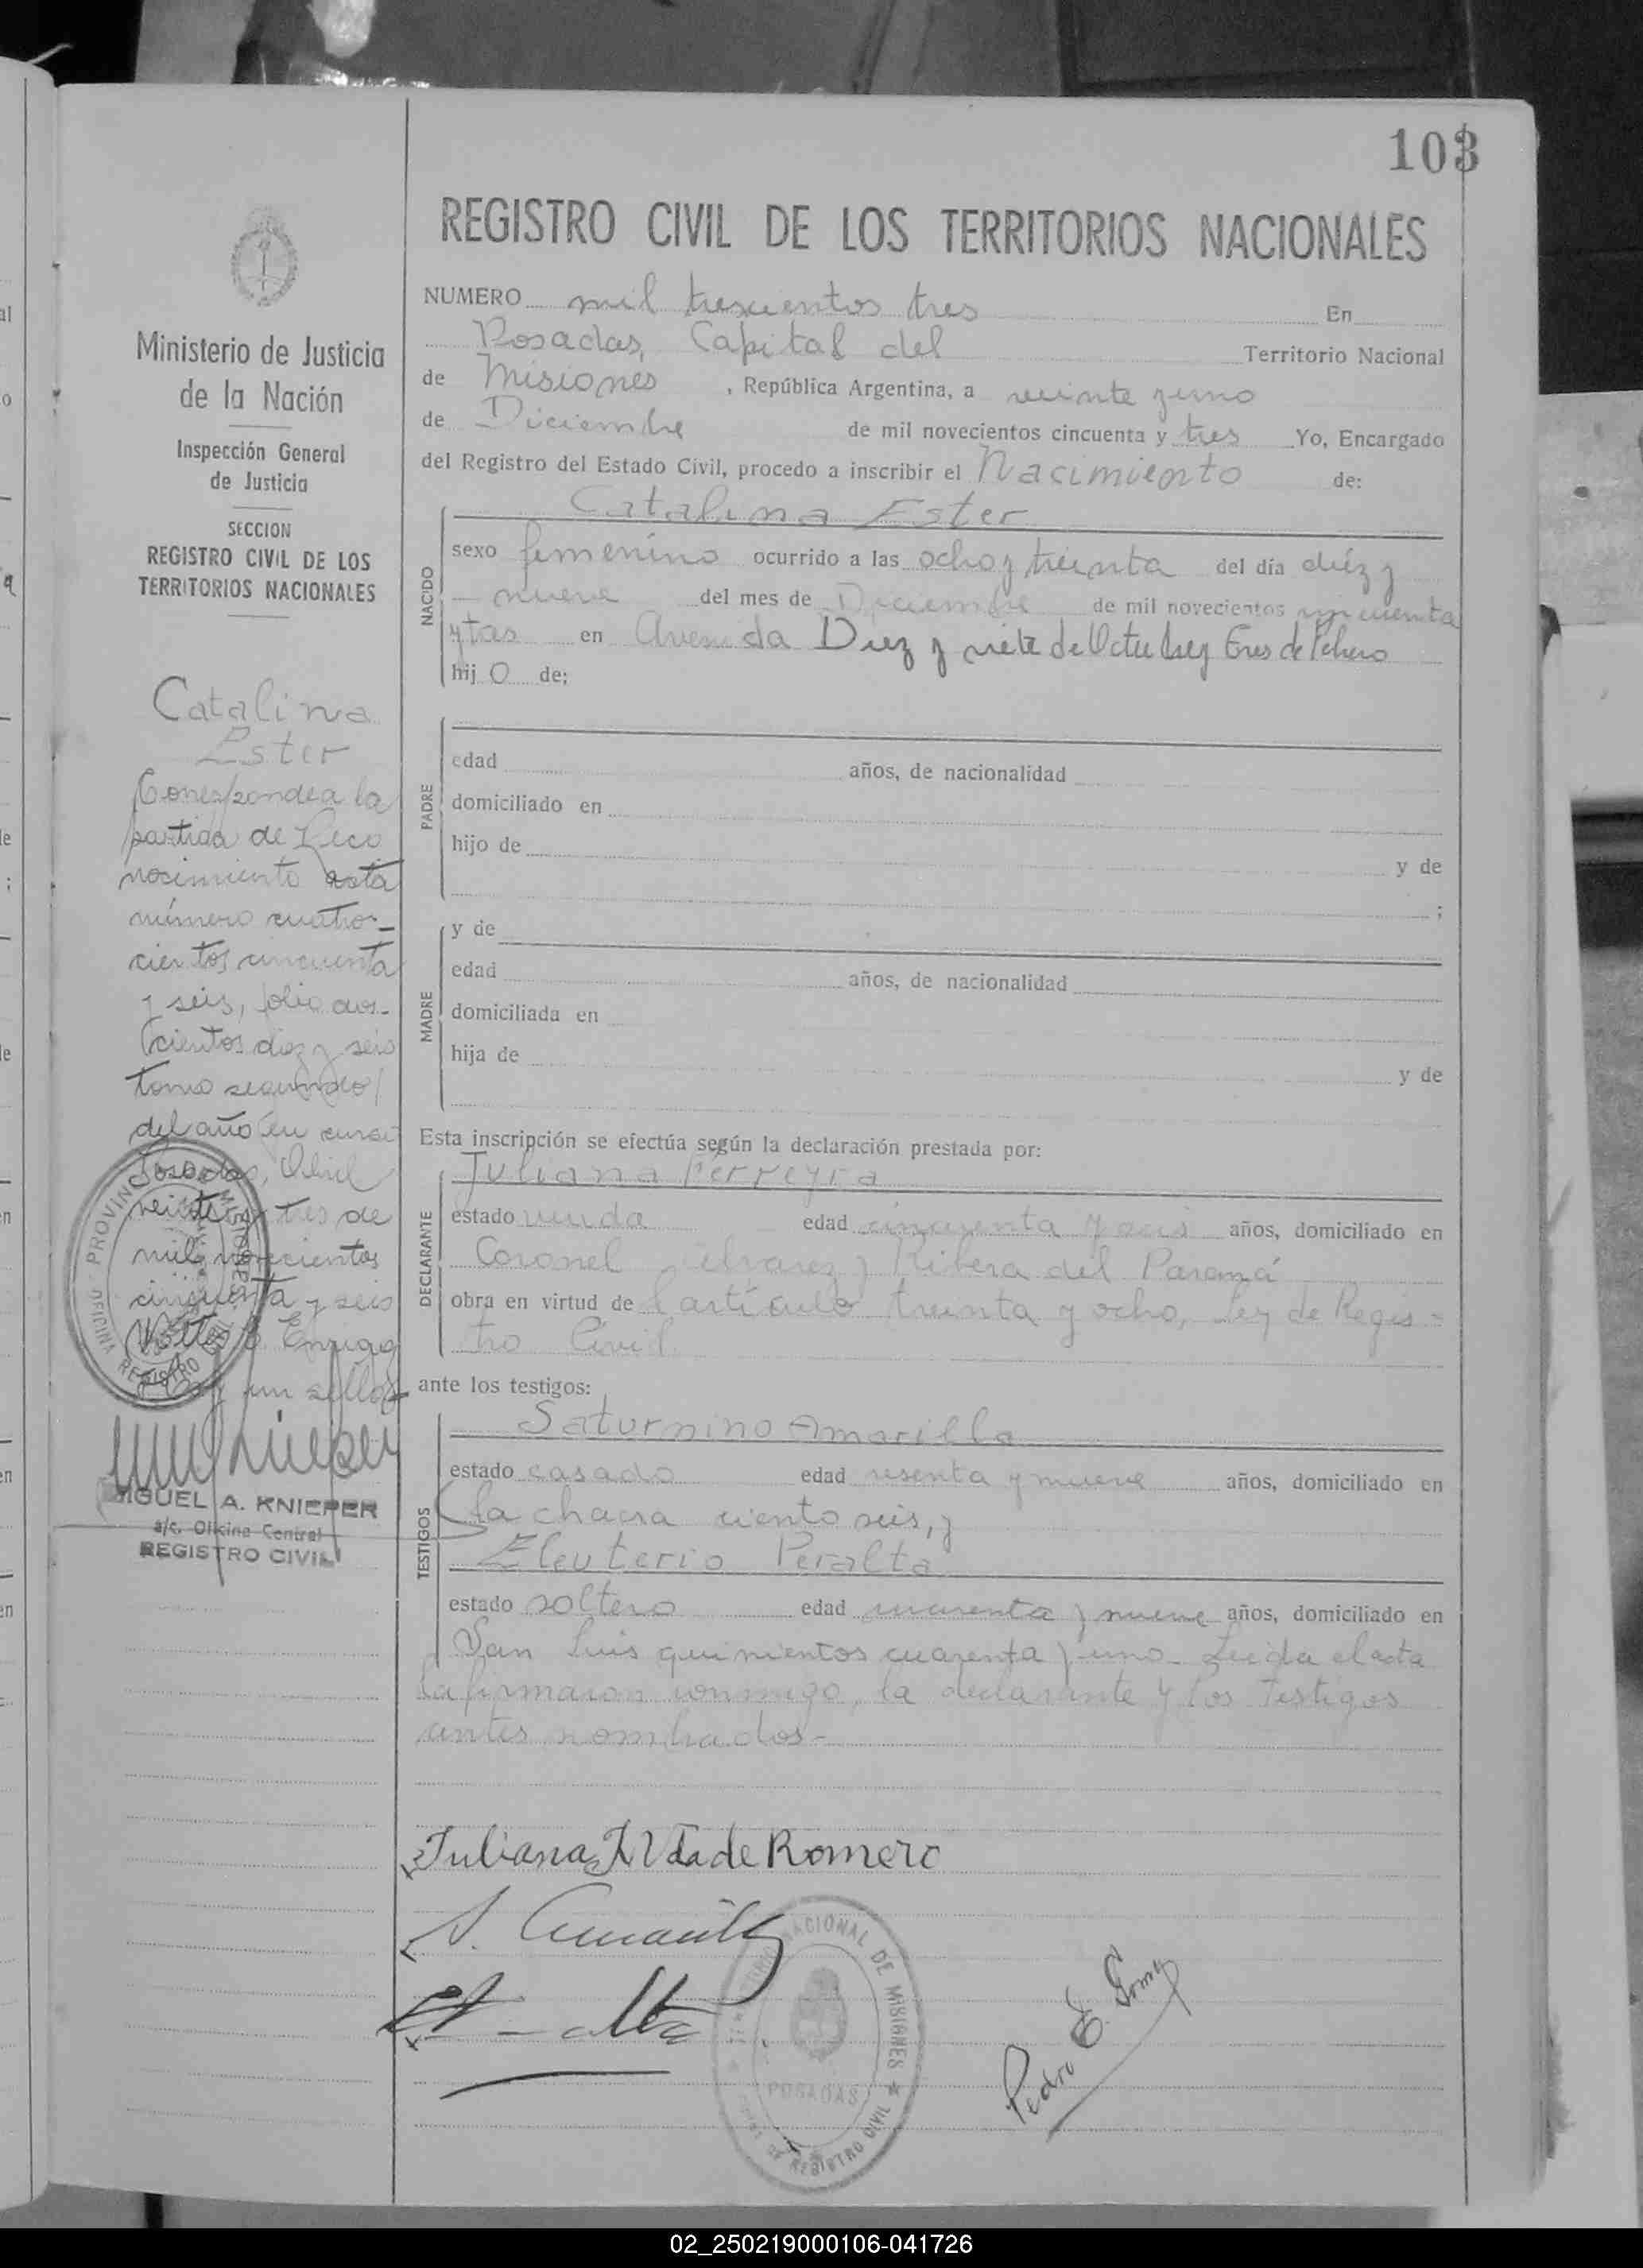 103
REGISTRO CIVIL DE LOS TERRITORIOS NACIONALES
NUMERO mil trescientos tres En
Posadas, Capital del Territorio Nacional
de Misiones, República Argentina, a veinte y uno
de Diciembre de mil novecientos cincuenta y tres Yo, Encargado
del Registro del Estado Civil, procedo a inscribir el Nacimiento de:
Catalina Ester
NACIDO
sexo femenino ocurrido a las ocho y treinta del día diéz y
nueve del mes de Diciembre de mil novecientos cincuenta
y tres en Avenida Diez y siete de Octubre y
hij O de:
PADRE
edad años, de nacionalidad
domiciliado en
hijo de y de
;
MADRE
y de
edad años, de nacionalidad
domiciliada en
hija de y de
Esta inscripción se efectúa según la declaración prestada por:
DECLARANTE
Juliana Ferreyra
estado viuda edad cincuenta y seis años, domiciliado en
Coronel Alvarez y Ribera del Paraná
obra en virtud del artículo treinta y ocho, Ley de Regis-
tro Civil
ante los testigos:
TESTIGOS
Saturnino Amarilla
estado casado edad sesenta y nueve años, domiciliado en
la chacra ciento seis, y
Eleuterio Peralta
estado soltero edad cuarenta y nueve años, domiciliado en
San Luis quinientos cuarenta y uno. Leida el acta
la firmaron conmigo, la declarante y los testigos
antes nombrados.-
Juliana F. Vda de Romero
S. Amarilla
Pedro E.
TERRITORIO NACIONAL DE MISIONES
POSADAS
REGISTRO CIVIL
Ministerio de Justicia
de la Nación
Inspección General
de Justicia
SECCION
REGISTRO CIVIL DE LOS
TERRITORIOS NACIONALES
Catalina
Ester
Corresponde a la
partida de Reco
nocimiento acta
número cuatro-
cientos cincuenta
y seis, folio dos-
cientos diez y seis
tomo segundo
del año en curso
Posadas, Abril
veinte y tres de
mil novecientos
cincuenta y seis
Hay un sello
PROVINCIA MISIONES
OFICINA REGISTRO CIVIL
MIGUEL A. KNIEPER
a/c. Oficina Central
REGISTRO CIVIL
02_250219000106-041726